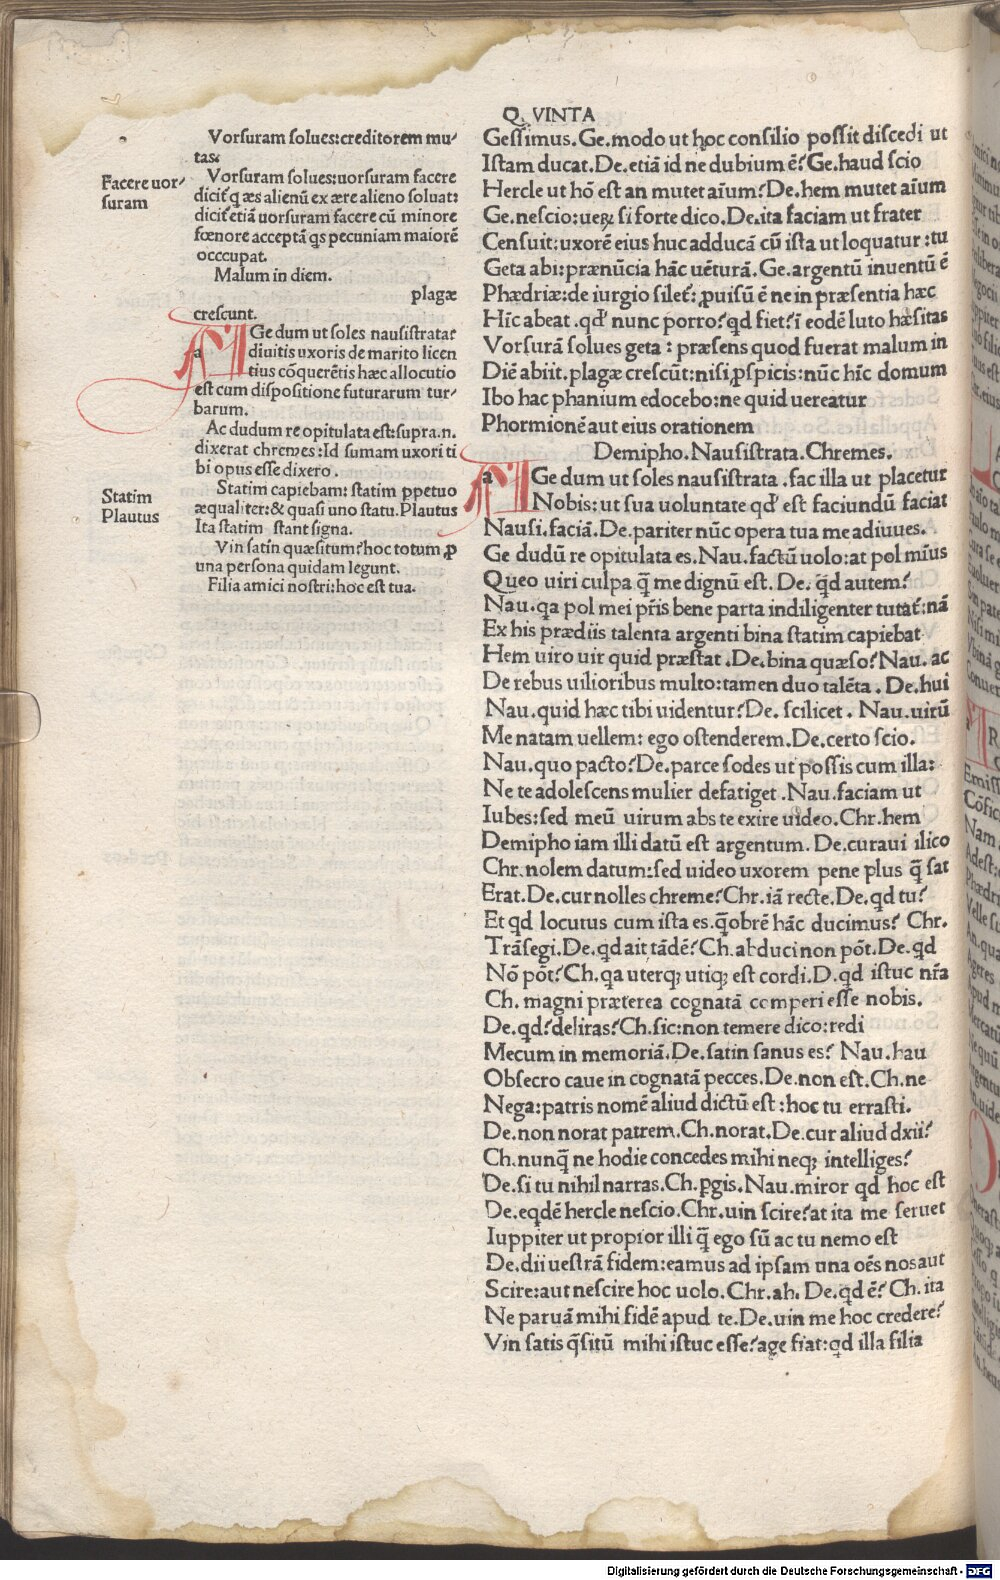 Q. VINTA
Vorsuram solues:creditorem mu-
tas:
Facere uor-
suram
Vorsuram solues:uorsuram facere
dicit̃ q æs alienũ ex ære alieno soluat:
dicit̃ etiã uorsuram facere cũ minore
fœnore acceptã qs pecuniam maiorē
occcupat.
Malum in diem.
plagæ
crescunt.
a AGe dum ut soles nausistratat
diuitis uxoris de marito licen
tius cõquerētis hæc allocutio
est cum dispositione futurarum tur-
barum.
Ac dudum re opitulata est:supra.n.
dixerat chremes:Id sumam uxori ti
bi opus esse dixero.
Statim
Plautus
Statim capiebam: statim ppetuo
æqualiter:& quasi uno statu.Plautus
Ita statim stant signa.
Vin satin quæsitum?hoc totum ꝓ
una persona quidam legunt.
Filia amici nostri:hoc est tua.
Gessimus.Ge.modo ut hoc consilio possit discedi ut
Istam ducat.De.etiã id ne dubium ē?Ge.haud scio
Hercle ut hõ est an mutet aĩum?De.hem mutet aĩum
Ge.nescio:ueꝝ si forte dico.De.ita faciam ut frater
Censuit:uxorē eius huc adducã cũ ista ut loquatur:tu
Geta abi:prænũcia hãc uētura.Ge.argentũ inuentũ ē
Phædriæ:de iurgio silet̃:ꝓuisũ ē ne in præsentia hæc
Hĩc abeat.qđ nunc porro?qd fiet?ĩ eodē luto hæsitas
Vorsurã solues geta:præsens quod fuerat malum in
Diē abiit.plagæ crescũt:nisi ꝓspicis:nũc hĩc domum
Ibo hac phanium edocebo:ne quid uereatur
Phormionē aut eius orationem
Demipho.Nausistrata.Chremes.
a AGe dum ut soles nausistrata.fac illa ut placetur
Nobis:ut sua uoluntate qđ est faciundũ faciat
Nausi.faciã.De.pariter nũc opera tua me adiuues.
Ge dudũ re opitulata es.Nau.factũ uolo:at pol mĩus
Queo uiri culpa q̃ me dignũ est.De.q̃d autem?
Nau.qa pol mei p̃ris bene parta indiligenter tutat̃:nã
Ex his prædiis talenta argenti bina statim capiebat
Hem uiro uir quid præstat.De.bina quæso?Nau.ac
De rebus uilioribus multo:tamen duo talēta.De.hui
Nau.quid hæc tibi uidentur?De.scilicet.Nau.uirũ
Me natam uellem:ego ostenderem.De.certo scio.
Nau.quo pacto?De.parce sodes ut possis cum illa:
Ne te adolescens mulier defatiget.Nau.faciam ut
Iubes:sed meũ uirum abs te exire uideo.Chr.hem
Demipho iam illi datũ est argentum.De.curaui ilico
Chr.nolem datum:sed uideo uxorem pene plus q̃ sat
Erat.De.cur nolles chreme?Chr.iã recte.De.qd tu?
Et qd locutus cum ista es.q̃obrē hãc ducimus?Chr.
Trãsegi.De.qd ait tãdē?Ch.abduci non põt.De.qd
Nõ põt?Ch.qa uterqꝫ utiqꝫ est cordi.D.qd istuc nr̃a
Ch.magni præterea cognatã comperi esse nobis.
De.qd?deliras?Ch.sic:non temere dico:redi
Mecum in memoriã.De.satin sanus es?Nau.hau
Obsecro caue in cognatã pecces.De.non est.Ch.ne
Nega:patris nomē aliud dictũ est:hoc tu errasti.
De.non norat patrem.Ch.norat.De.cur aliud dxit?
Ch.nunq̃ ne hodie concedes mihi neqꝫ intelliges?
De.si tu nihil narras.Ch.ꝑgis.Nau.miror qđ hoc est
De.eqdē hercle nescio.Chr.uin scire?at ita me seruet
Iuppiter ut propior illi q̃ ego sũ ac tu nemo est
De.dii uestrã fidem:eamus ad ipsam una oēs nos aut
Scire:aut nescire hoc uolo.Chr.ah.De.qd ē?Ch.ita
Ne paruã mihi fidē apud te.De.uin me hoc credere?
Vin satis q̃sitũ mihi istuc esse?age fiat:qd illa filia
Digitalisierung gefördert durch die Deutsche Forschungsgemeinschaft - DFG